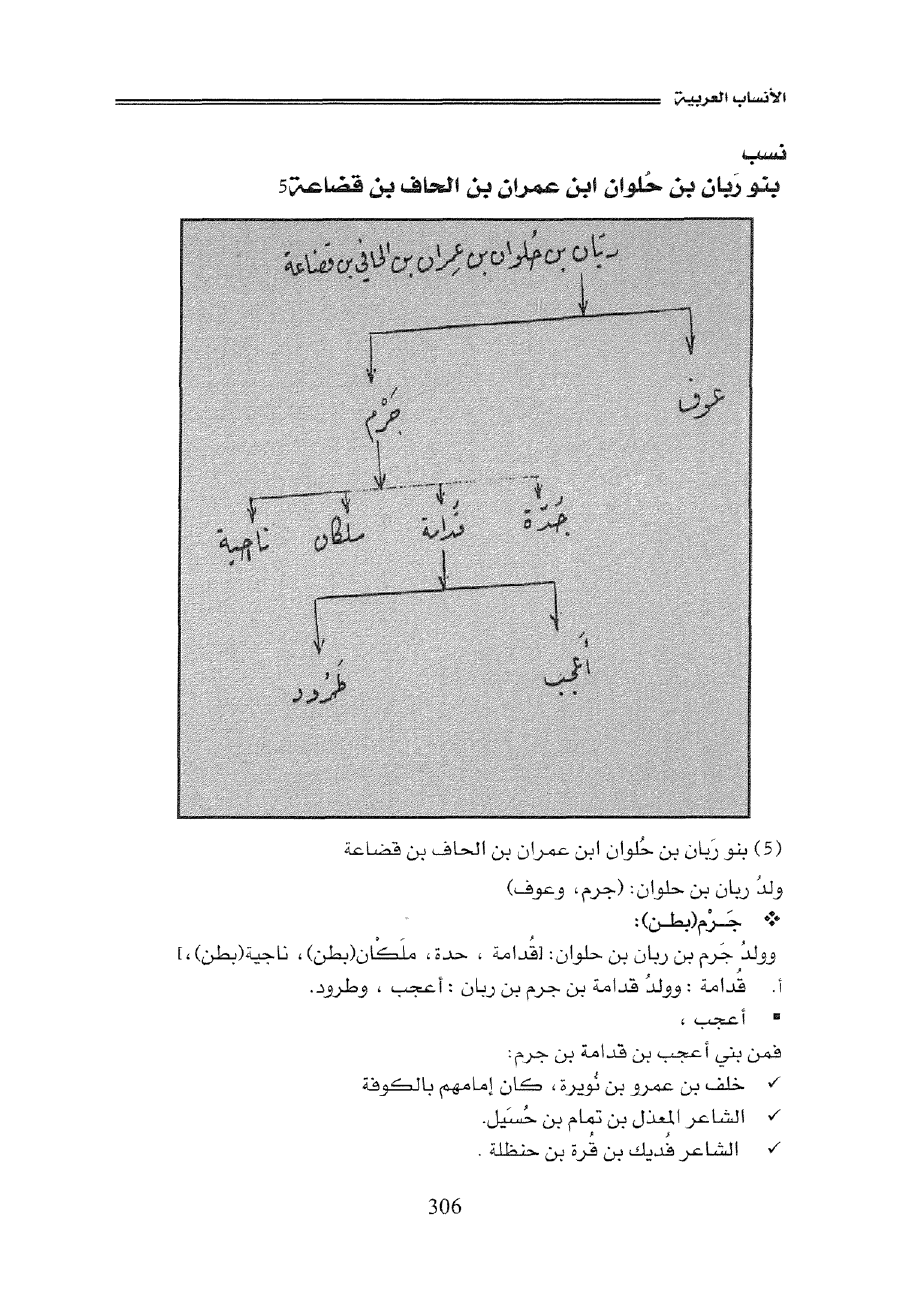 الأنساب العربية
نسب
بنو رَبان بن حُلوان ابن عمران بن الحاف بن قضاعة5
ربّان بن حُلوان بن عِمران بن الحافي بن قضاعة
عوف
جَرْم
جُدَّة
قُدَامة
ملكان
ناجية
أَعجب
طَرُود
(5) بنو رَبان بن حُلوان ابن عمران بن الحاف بن قضاعة
ولدُ ربان بن حلوان: (جرم، وعوف)
❖ جَـرْم(بطـن):
وولدُ جَرم بن ربان بن حلوان: [قُدامة ، حدة، ملَكْان(بطن)، ناجية(بطن)،]
أ. قُدامة : وولدُ قدامة بن جرم بن ربان : أعجب ، وطرود.
▪ أعجب ،
فمن بني أعجب بن قدامة بن جرم:
✓ خلف بن عمرو بن نُويرة، كان إمامهم بالكوفة
✓ الشاعر المعذل بن تمام بن حُسَيل.
✓ الشاعر فُديك بن قُرة بن حنظلة .
306